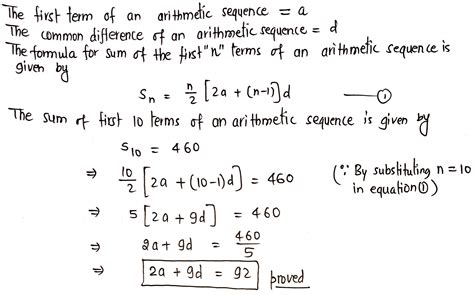 The first term of an arithmetic sequence = a
The common difference of an arithmetic sequence = d
The formula for sum of the first "n" terms of an arithmetic sequence is
given by
Sn = n/2 [2a + (n-1)]d —— ①
The sum of first 10 terms of an arithmetic sequence is given by
S10 = 460
⇒ 10/2 [2a + (10-1)d] = 460 (∵ By substituting n = 10
in equation ①)
⇒ 5 [2a + 9d] = 460
⇒ 2a + 9d = 460/5
⇒ 2a + 9d = 92 proved